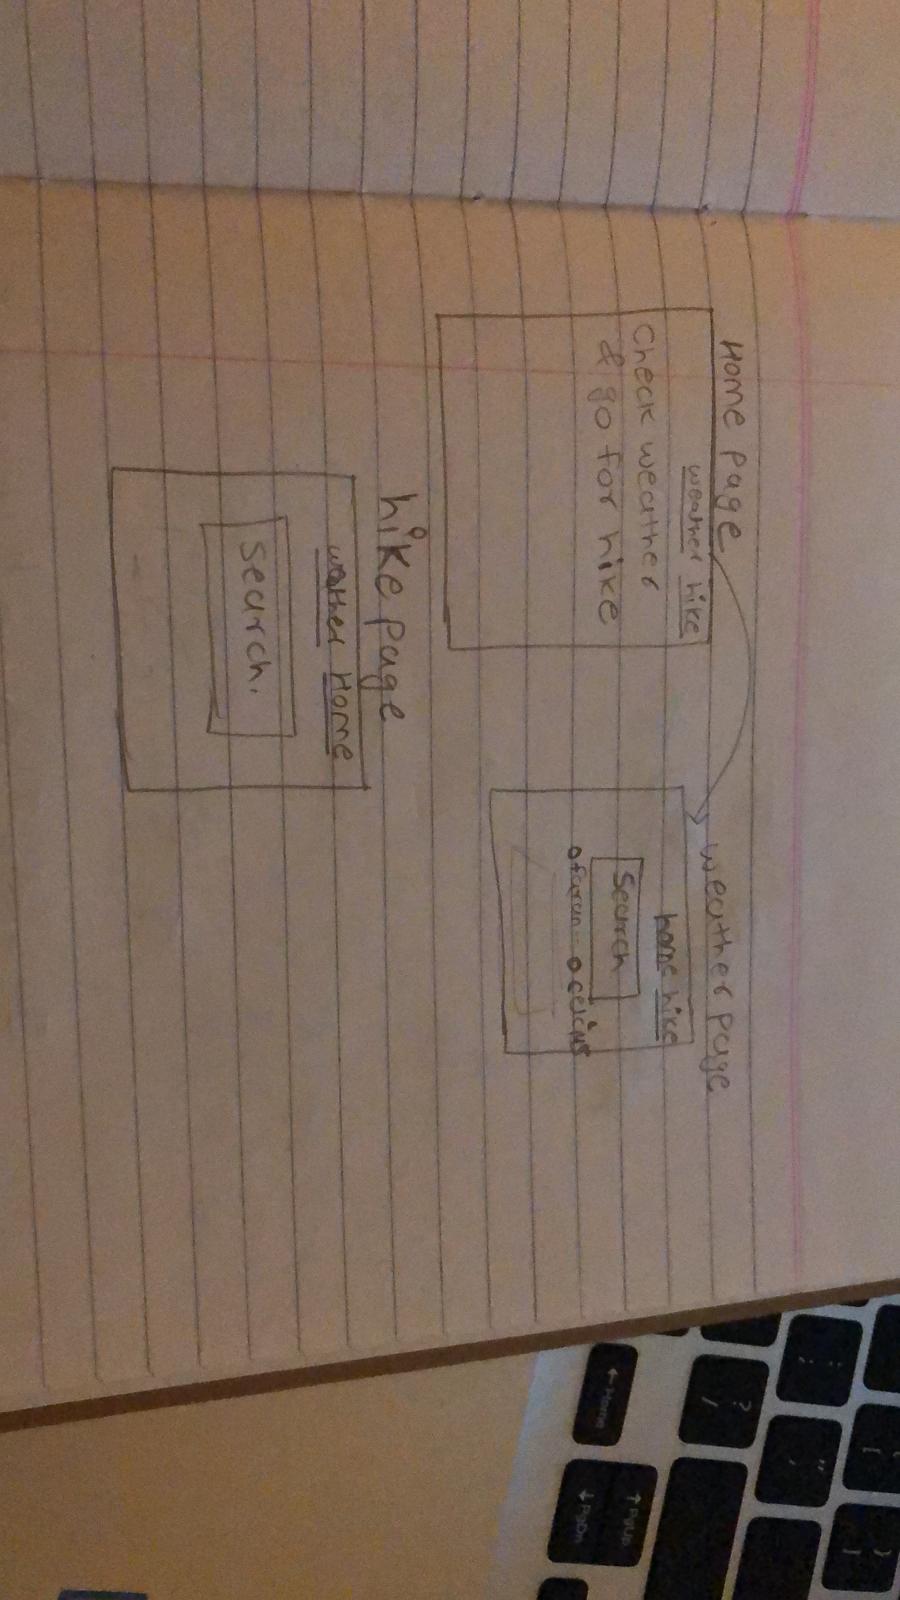 Home page
weather hike
Check weather
& go for hike
weather page
home hike
Search
faran celcius
hike page
weather Home
search.
? /
← Home
↑ PgUp
↓ PgDn